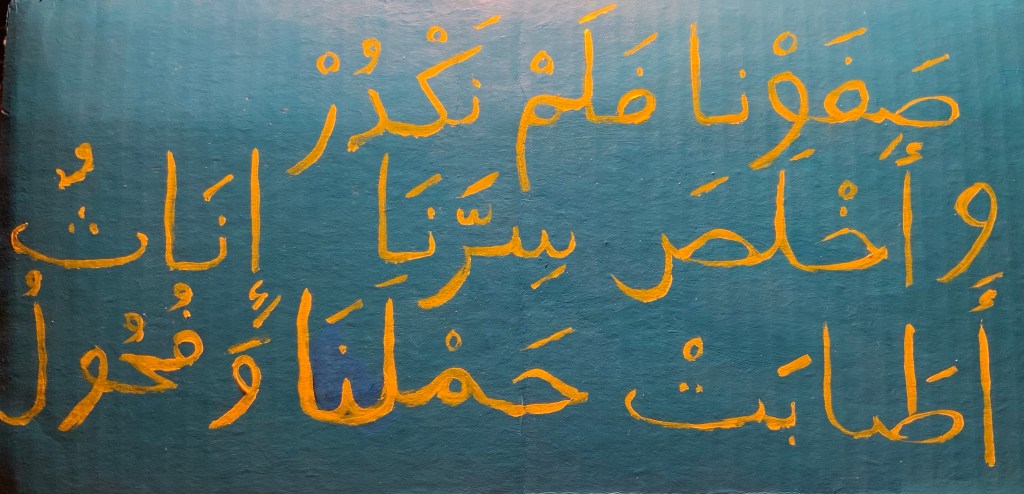 صَفَوْنا فَلَمْ نَكْدُرْ
وأَخْلَصَ سِرَّنَا إِنَاتٌ
أَطَابَتْ حَمْلَنَا وَفُحُولُ